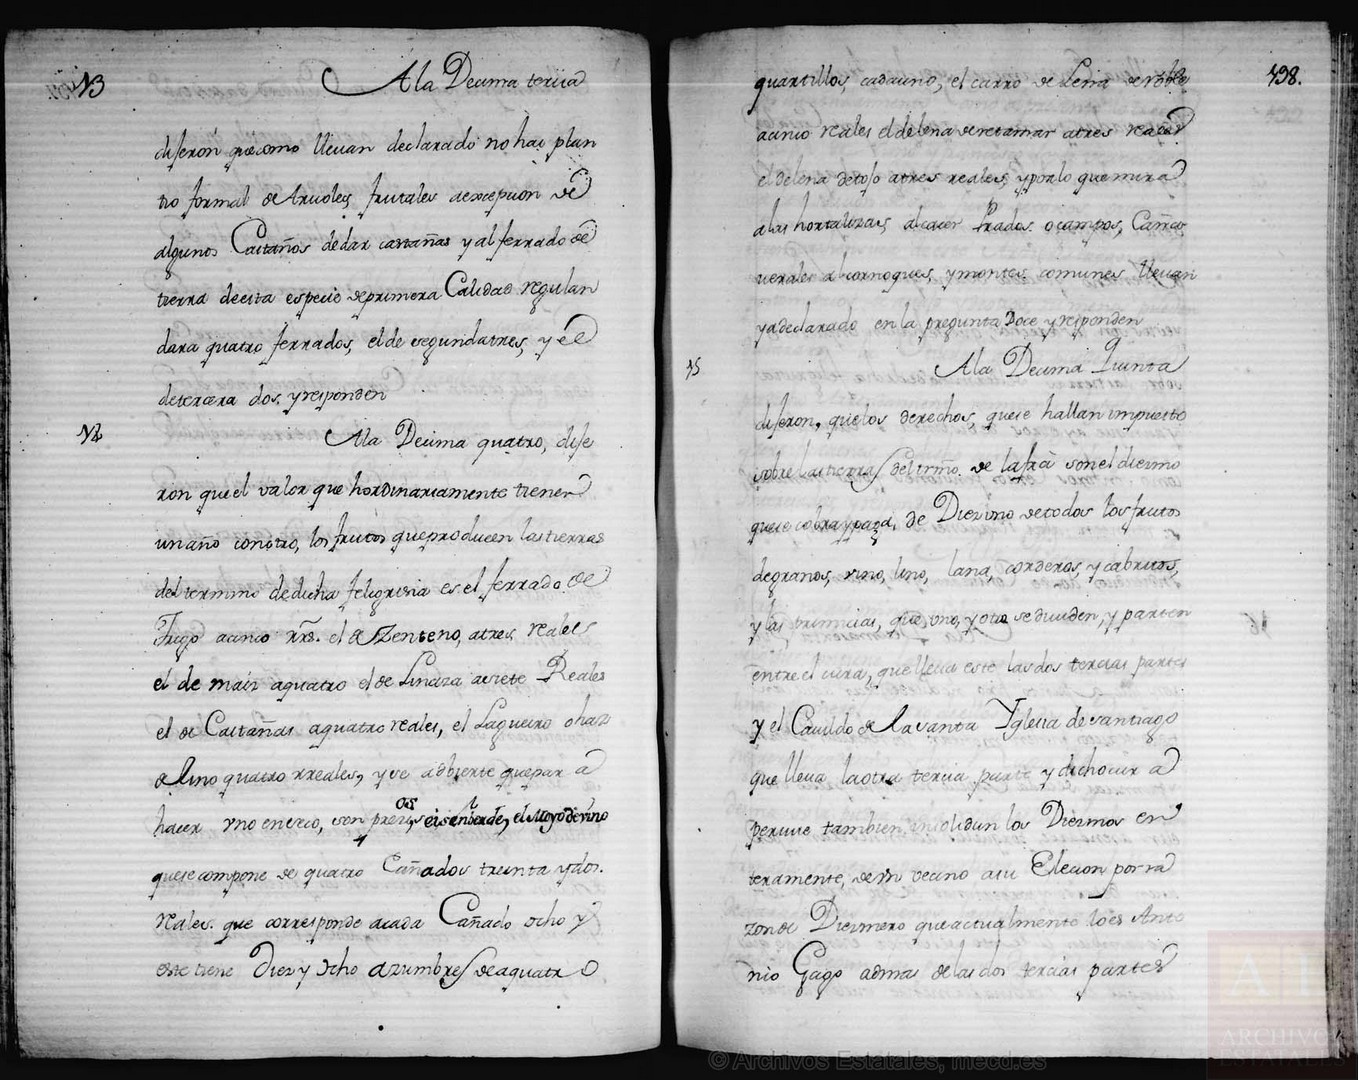 13 A la Decima tercia
dijeron que como llevan declarado no hai plan
tio formal de Arvoles frutales aexcepcion de
algunos Castaños de dar castañas y al ferrado de
tierra de esta especie de primera Calidad regulan
dara quatro ferrados, el de segunda tres, y el
de tercera dos, y responden
14 A la Decima quatro, dije
ron que el valor que hordinariamente tienen
un año con otro, los frutos que producen las tierras
del termino de dicha feligresia es el ferrado de
Trigo a cinco rrs. el de Zenteno, a tres reales
el de maiz a quatro el de Linaza a siete Reales
el de Castañas a quatro reales, el haz
de lino quatro rreales, y se adbierte que para
hacer vno en seco, son precisos seis en berde, el Moyo de vino
que se compone de quatro Cañados treinta y dos
reales. que corresponde a cada Cañado ocho y
este tiene Diez y ocho azumbres de a quatro
438.
quartillos, cada uno, el carro de Leña de roble
a cinco reales el de leña de retamar a tres reales
el de leña de tojo a tres reales, y por lo que mira
a las hortalizas, alcacer Prados o campos, Caña
verales y montes comunes, llevan
ya declarado en la pregunta Doce y responden
15 A la Decima Quinta
dijeron, que los derechos, que se hallan impuesto
sobre las tierras del trmo. de la fra son el diezmo
que se cobra y paga, de Diez vno de todos los frutos
de granos, vino, lino, lana, corderos y cabritos,
y las primicias, que vno, y otro se dividen, y parten
entre el cura, que lleva este las dos tercias partes
y el Cavildo de la santa Yglesia de santiago
que lleva la otra tercia parte y dicho cura
percive tambien los Diezmos en
teramente, de vn vecino a su Elecion por ra
zon de Diezmero que actualmente lo es Anto
nio Gago ademas de las dos tercias partes
© Archivos Estatales, mecd.es
ARCHIVOS
ESTATALES